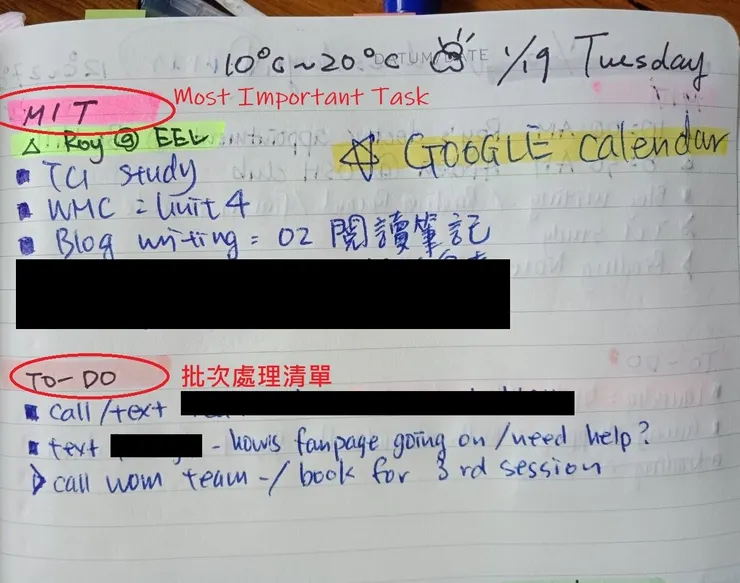 10°C~20°C DATUM/DATE 1/19 Tuesday
MIT Most Important Task
Roy @ EEL
☆ GOOGLE calendar
TCI study
WMC = Unit 4
Blog writing = 02 閱讀筆記
TO-DO 批次處理清單
call/text
text - how's fanpage going on/need help?
call wom team -/ book for 3rd session